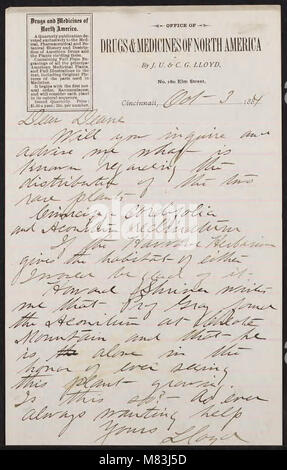 Drugs and Medicines of
North America.
A Quarterly publication de-
voted exclusively to the Med-
ical, Pharmaceutical and Bo-
tanical History and Descrip-
tion of American Drugs and
the Plants yielding them.
Containing Full Page En-
gravings of all the principal
American Medicinal Plants
and Full Illustrations in the
text, including Original Pic-
tures of the parts used in
Medicine.
It begins with the first nat-
ural order, Ranunculaceæ,
Issued Quarterly. Price
$1.00 a year.
OFFICE OF
DRUGS & MEDICINES OF NORTH AMERICA
By J. U. & C. G. LLOYD,
No. 180 Elm Street,
Cincinnati, Oct 3 1884
Dear Deane
Will you inquire and
advise me what is
known regarding the
distribution of the two
rare plants
Cimicifuga cordifolia
and Aconitum reclinatum
If the Harvard Herbarium
gives the habitat of either
I would be glad of it.
Howard Shriver writes
me that Prof Gray found
the Aconitum at
Mountain and that he
is alone in the
honor of ever seeing
this plant growing.
Is this so? As ever
always wanting help
Yours
Lloyd
alamy
M83J5D